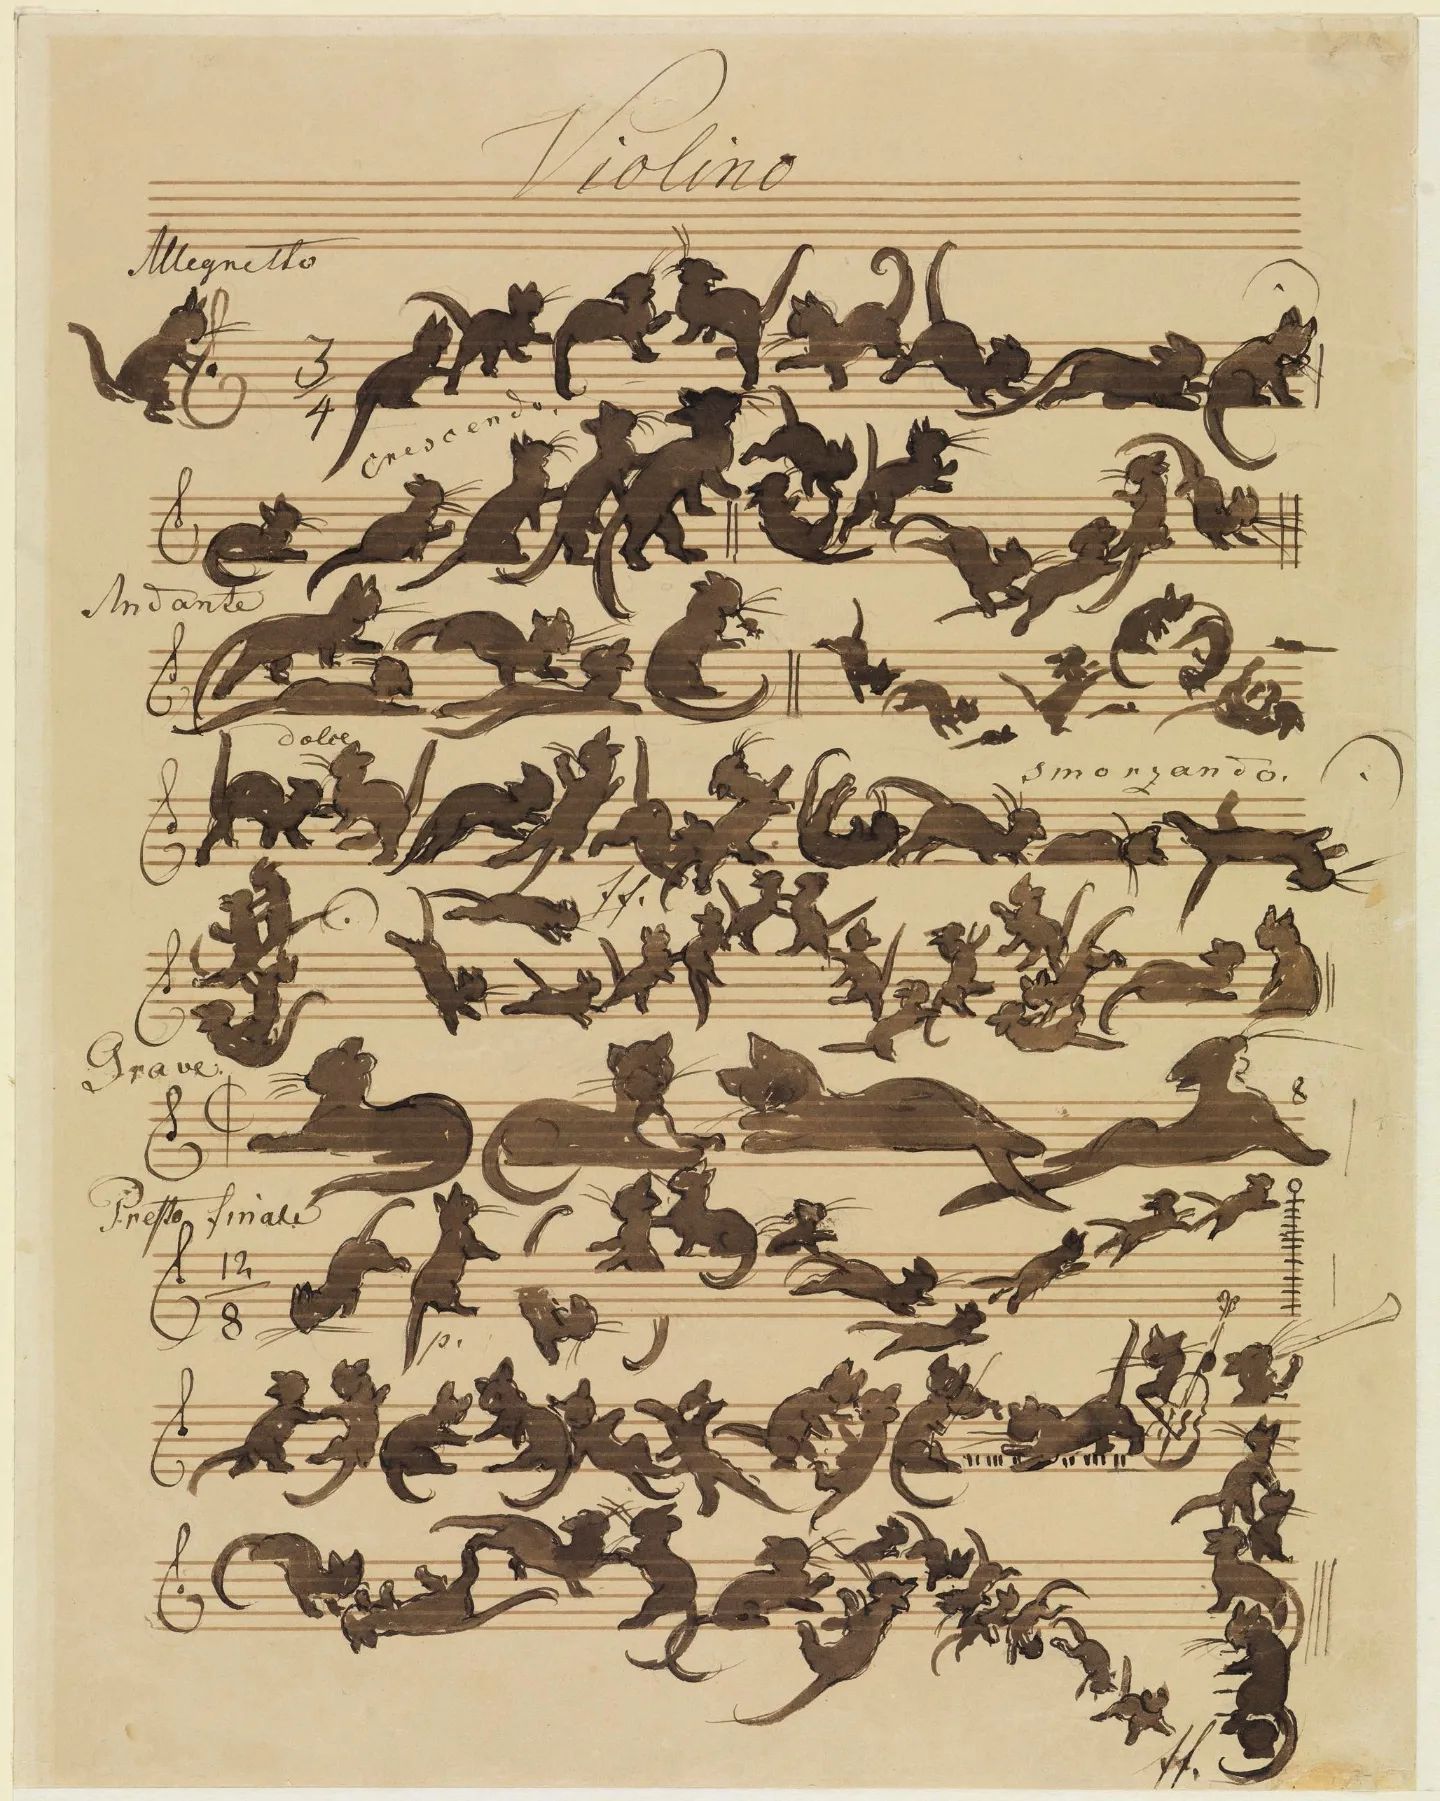 Violino
Allegretto
3
4
crescendo.
Andante
dolce
smorzando.
ff.
Grave.
8
Presto finale
12
8
p.
ff.